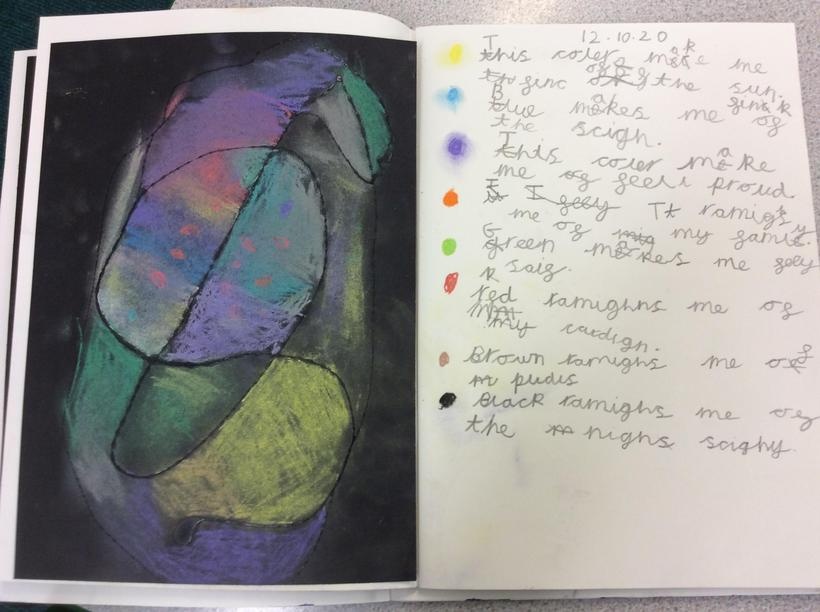 12.10.20
This coler make me
ginc og the sun.
Blue makes me ginck og
the scigh.
This coler make
me feel proud.
It ramigs
me og my gamiy.
Green makes me gely
saig.
Red ramighns me og
my cardign.
Brown ramighs me og
pudis
Black ramighs me og
the nighs scighy.